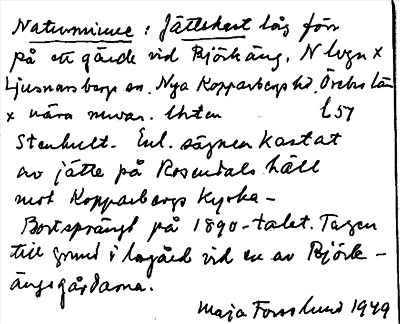 Naturminne: Jättekast låg förr
på ett gärde vid Björkäng, N byn x
Ljusnarsbergs sn. Nya Kopparbergs hd. Örebro län
x nära numr. 657
Stenhult. Enl. sägnen kastat
av jätte på Rosendals häll
mot Kopparbergs kyrka -
Bortsprängt på 1890-talet. Tagen
till grund i lagård vid en av Björk-
ängsgårdarna.
Maja Forsslund 1949